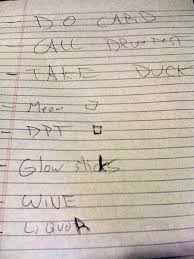 DO CARD
CALL
- TAKE DUCK
- Meow
- DPT
- Glow sticks
- WINE
LIQUOR